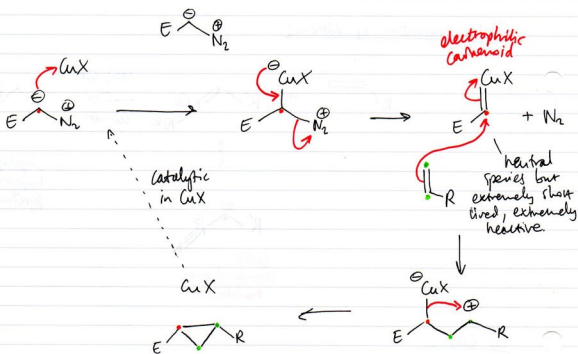 E ⊖ N₂ ⊕
CuX
E ⊖ N₂ ⊕
⊖ CuX
E N₂ ⊕
electrophilic
carbenoid
CuX
E + N₂
R
neutral
species but
extremely short
lived, extremely
reactive.
Catalytic
in CuX
CuX
E R
⊖ CuX ⊕
E R